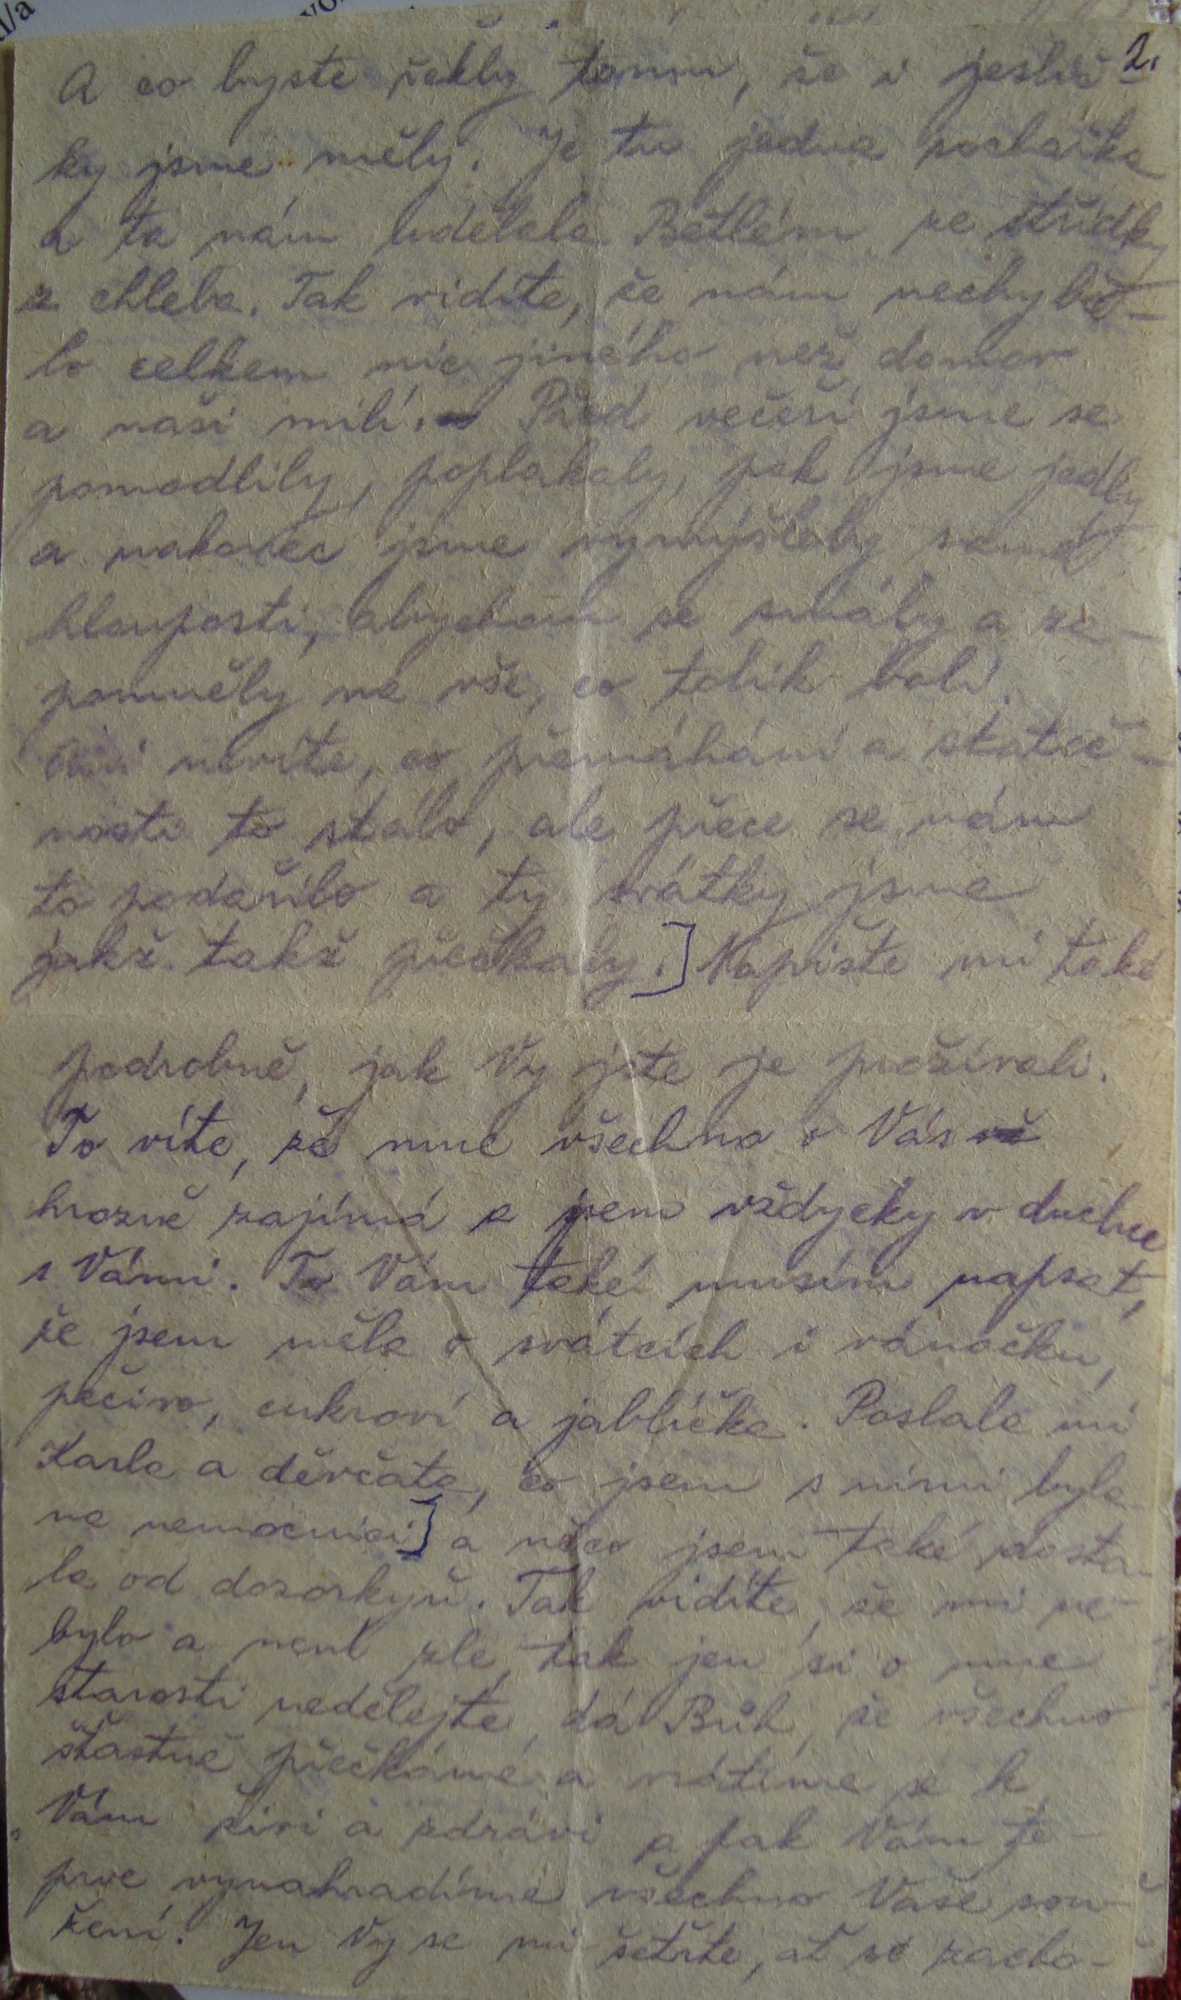 2.
A co byste řekly tomu, že i jeslič-
ky jsme měly. Je tu jedna sochařka
a ta nám udělala Betlém ze střídky
z chleba. Tak vidíte, že nám nechybě-
lo celkem nic jiného než domov
a naši milí. Před večeří jsme se
pomodlily, poplakaly, pak jsme jedly
a nakonec jsme vymýšlely samé
hlouposti, abychom se smály a za-
pomněly na vše, co tolik bolí.
Ani nevíte, co přemáhání a stateč-
nosti to stálo, ale přece se nám
to podařilo a ty svátky jsme
jakž takž přečkaly.] Napište mi také
podrobně, jak Vy jste je prožívali.
To víte, že mne všechno o Vás
hrozně zajímá a jsem vždycky v duchu
s Vámi. To Vám také musím napsat,
že jsem měla o svátcích i vánočku,
pečivo, cukroví a jablíčka. Poslala mi
Karla a děvčata, co jsem s nimi byla
na nemocnici] a něco jsem také dosta-
la od dozorkyň. Tak vidíte, že mi ne-
bylo a není zle, tak jen si o mne
starosti nedělejte, dá Bůh, že všechno
šťastně přečkáme a vrátíme se k
Vám živi a zdrávi a pak Vám te-
prve vynahradíme všechno Vaše sou-
žení. Jen Vy se mi šetřte, ať se zacho-